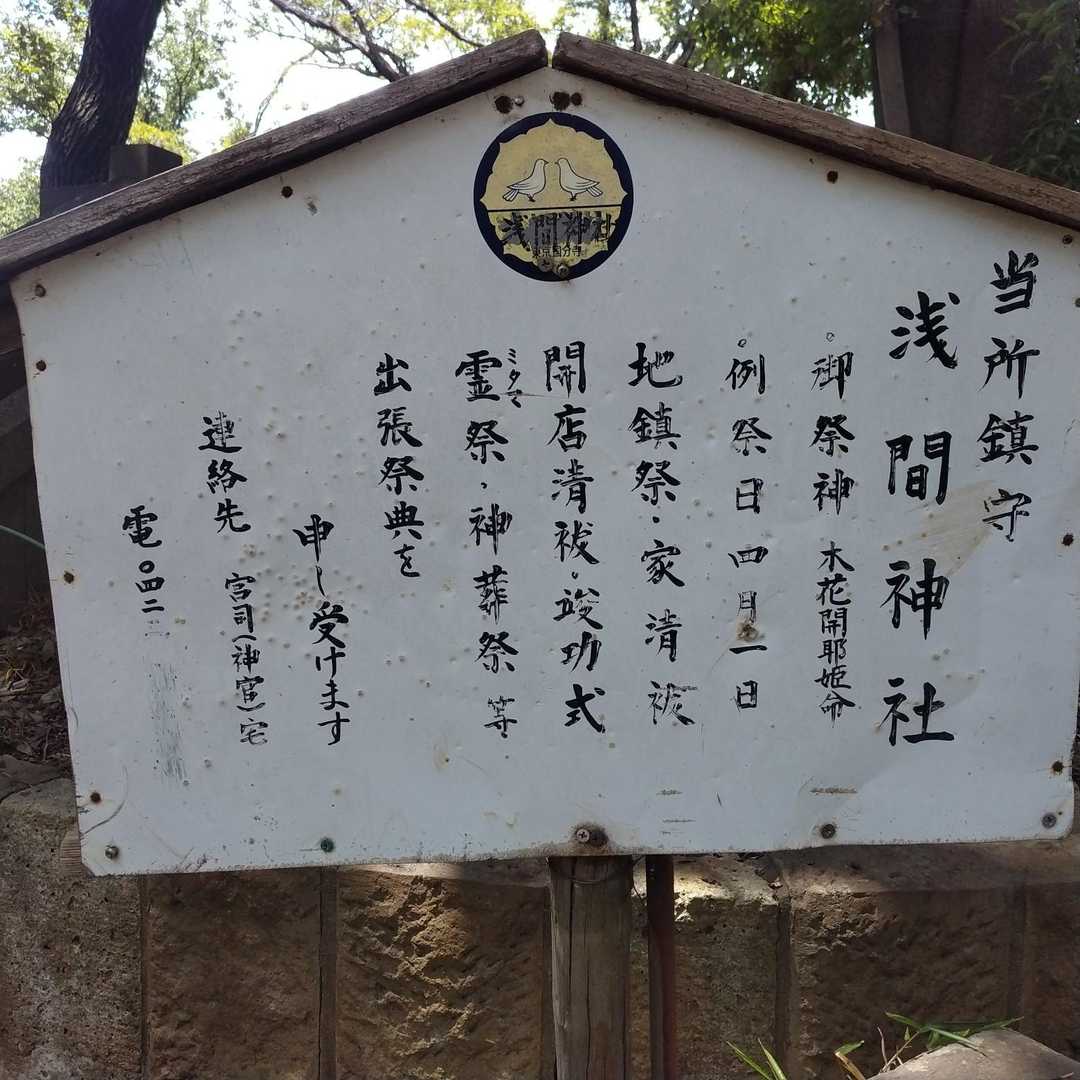 浅間神社
東京国分寺
当所鎮守
浅間神社
。御祭神 木花開耶姫命
。例祭日 四月一日
地鎮祭・家清祓
開店清祓。竣功式
霊祭、神葬祭等
ミタマ
出張祭典を
申し受けます
連絡先 宮司(神官)宅
電〇四二